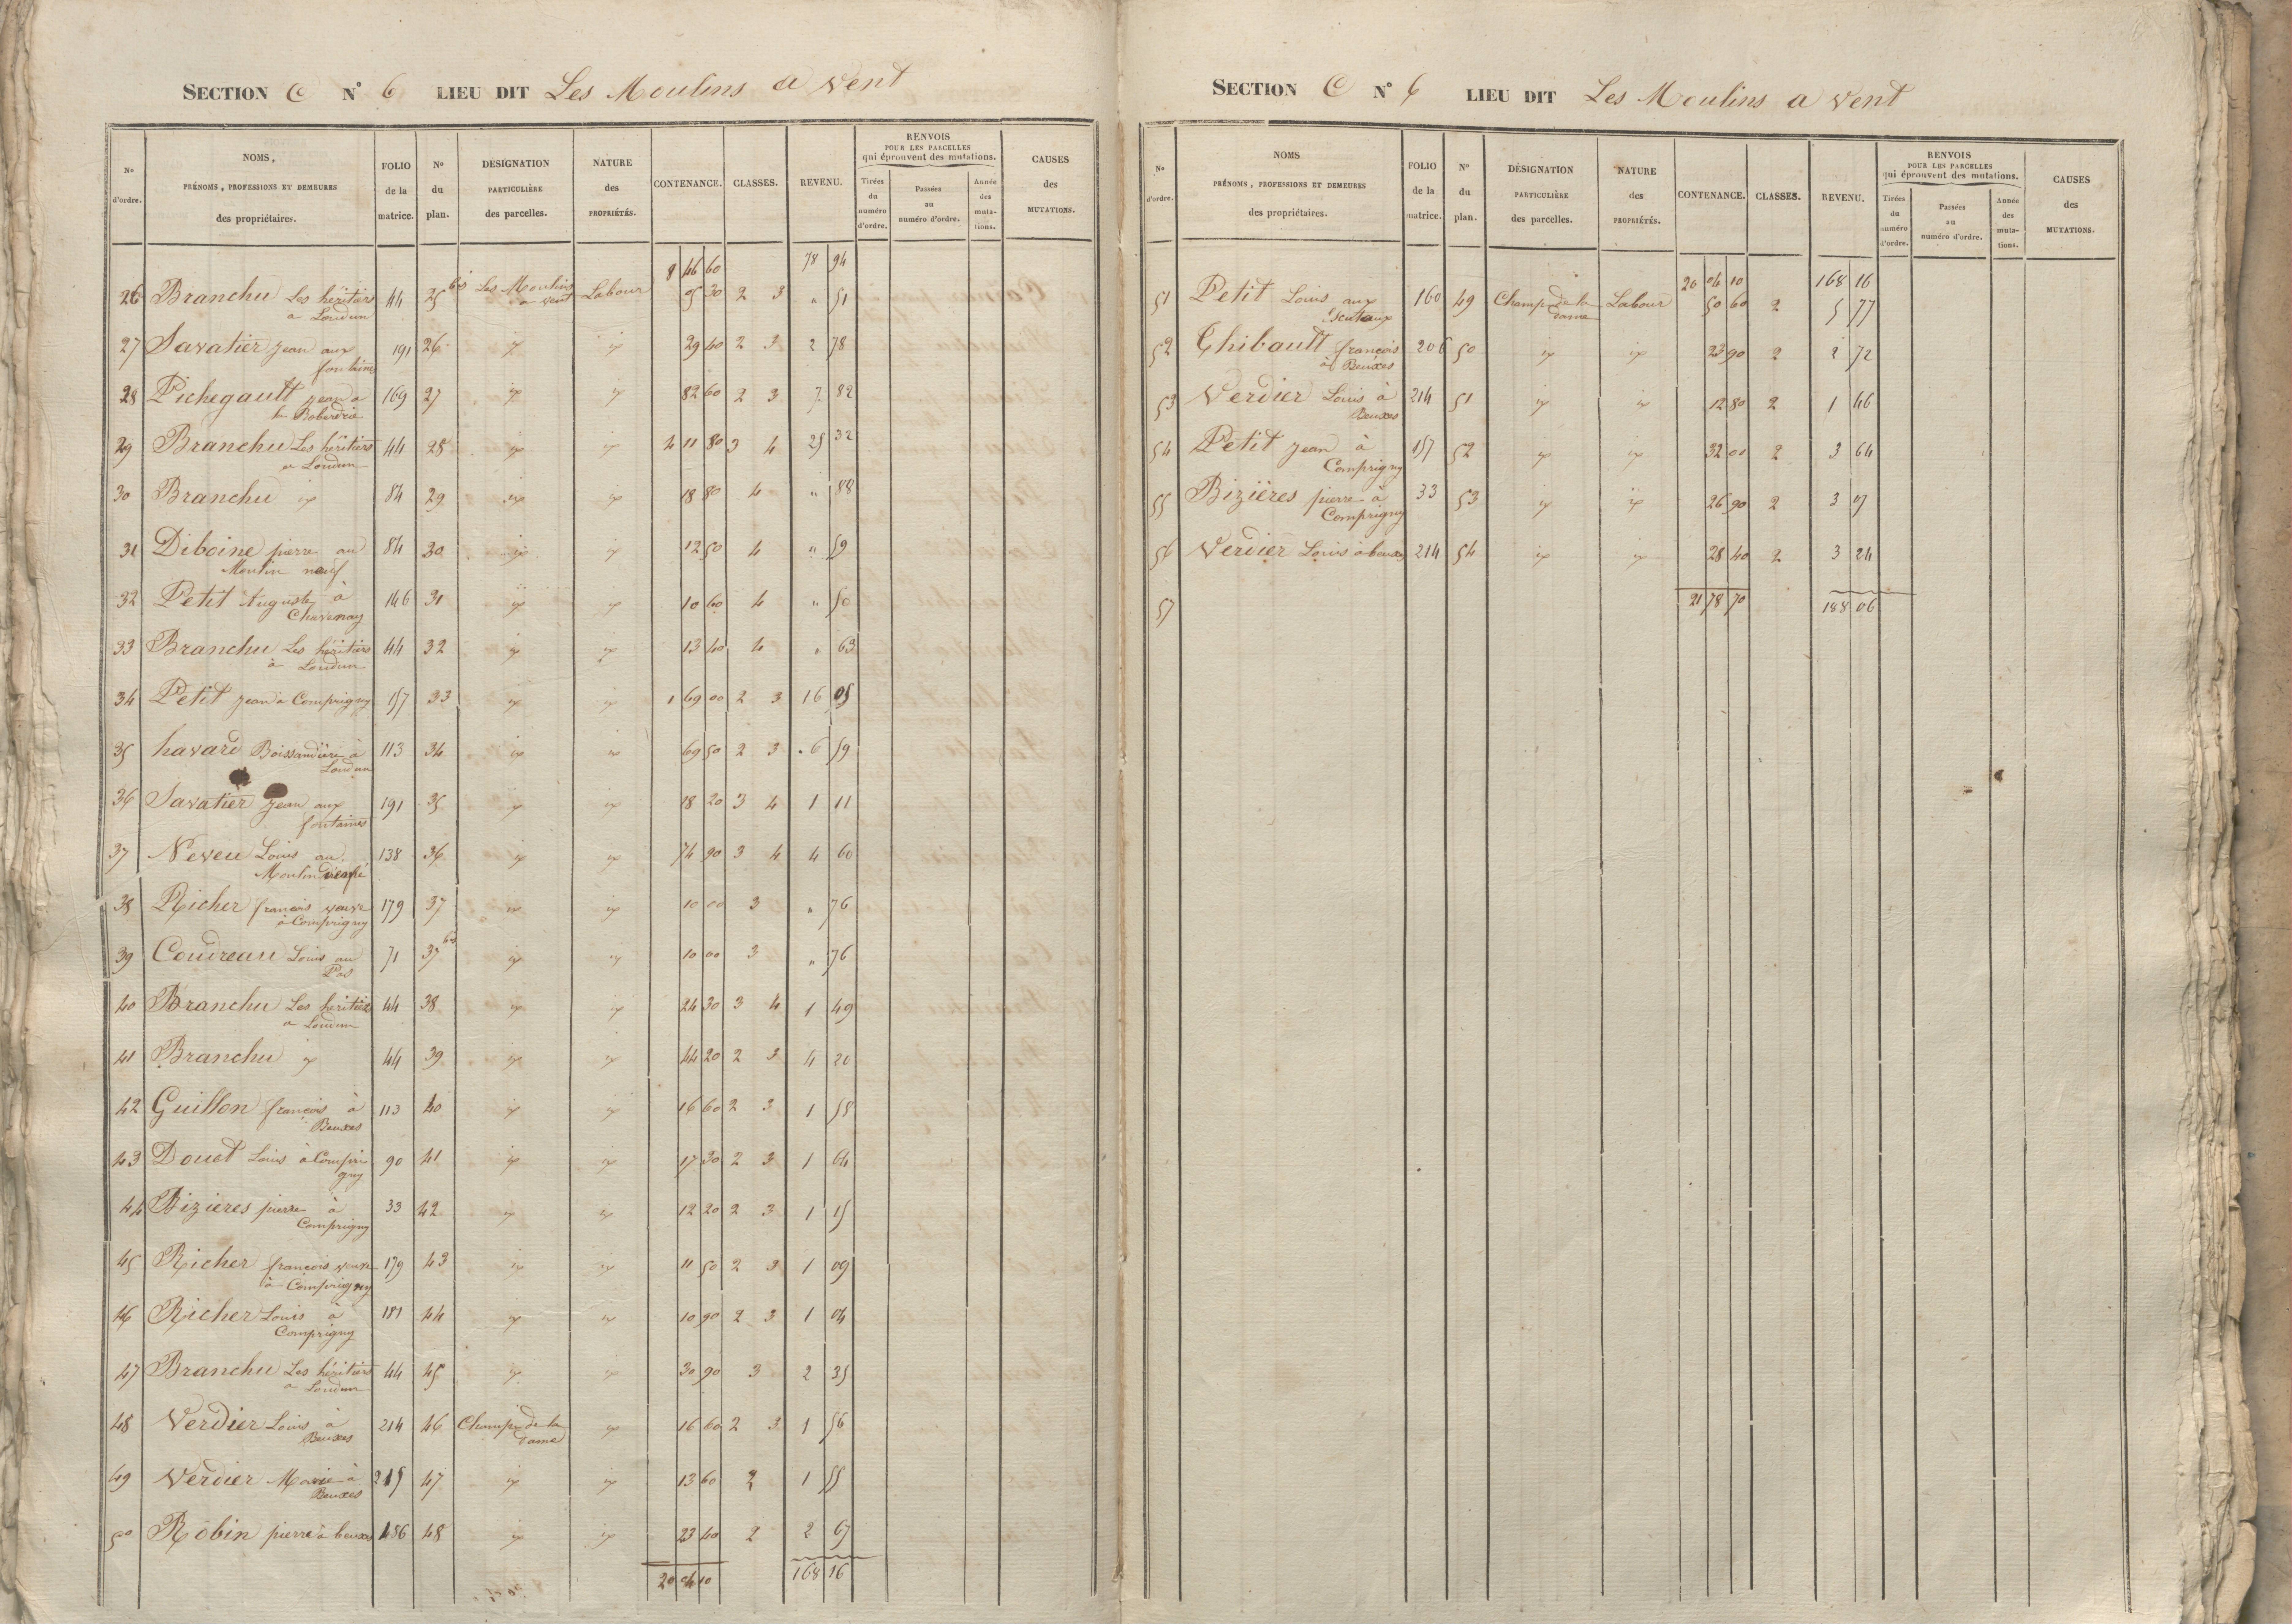 SECTION C N° 6 LIEU DIT Les Moulins a vent
N° d'ordre. NOMS, PRÉNOMS, PROFESSIONS ET DEMEURES des propriétaires. FOLIO de la matrice. N° du plan. DÉSIGNATION PARTICULIÈRE des parcelles. NATURE des PROPRIÉTÉS. CONTENANCE. CLASSES. REVENU. RENVOIS POUR LES PARCELLES qui éprouvent des mutations. Tirées du numéro d'ordre. Passées au numéro d'ordre. Année des mutations. CAUSES des MUTATIONS.
8 46 60 78 94
26 Branchu Les héritiers 44 25 bis Les Moulins Labour 05 30 2 3 " 51
a Loudun a vent
27 Savatier jean aux 191 26 " 29 40 2 3 2 78
fontaines
28 Pichegault jean a 169 27 82 60 2 3 7 82
la
29 Branchu Les héritiers 44 28 4 11 80 3 4 25 32
a Loudun
30 Branchu 84 29 18 80 4 " 88
31 Diboine pierre au 84 30 12 50 4 " 59
Moulin neuf
32 Petit Auguste à 146 31 10 60 4 " 50
Chavenay
33 Branchu Les héritiers 44 32 13 40 4 " 63
à Loudun
34 Petit jean a Comprigny 157 33 1 69 00 2 3 16 05
35 havard Boissandière à 113 34 69 50 2 3 6 59
Loudun
36 Savatier jean aux 191 35 18 20 3 4 1 11
fontaines
37 Neveu Louis au 138 36 74 90 3 4 4 60
Moulin
38 Richer françois veuve 179 37 10 00 3 " 76
à Comprigny
39 Coudreau Louis au 71 37 bis 10 00 3 " 76
Pas
40 Branchu Les héritiers 44 38 24 30 3 4 1 49
a Loudun
41 Branchu 44 39 44 20 2 3 4 20
42 Guillon françois à 113 40 16 60 2 3 1 58
Beuxes
43 Douet Louis à Compri 90 41 17 30 2 3 1 64
gny
44 Bizieres pierre à 33 42 12 20 2 3 1 15
Comprigny
45 Richer françois veuve 179 43 11 50 2 3 1 09
à Comprigny
46 Richer Louis à 181 44 10 90 2 3 1 04
Comprigny
47 Branchu Les héritiers 44 45 30 90 3 2 35
a Loudun
48 Verdier Louis à 214 46 Champ de la 16 60 2 3 1 56
Beuxes dame
49 Verdier Marie à 215 47 13 60 2 1 55
Beuxes
50 Robin pierre à beuxes 186 48 23 40 2 2 67
20 04 10 168 16
SECTION C N° 6 LIEU DIT Les Moulins a vent
N° d'ordre. NOMS PRÉNOMS, PROFESSIONS ET DEMEURES des propriétaires. FOLIO de la matrice. N° du plan. DÉSIGNATION PARTICULIÈRE des parcelles. NATURE des PROPRIÉTÉS. CONTENANCE. CLASSES. REVENU. RENVOIS POUR LES PARCELLES qui éprouvent des mutations. Tirées du numéro d'ordre. Passées au numéro d'ordre. Année des mutations. CAUSES des MUTATIONS.
20 04 10 168 16
51 Petit Louis aux 160 49 Champ de la Labour 50 60 2 5 77
dame
52 Thibault françois 206 50 23 90 2 2 72
à Beuxes
53 Verdier Louis à 214 51 12 80 2 1 46
Beuxes
54 Petit jean à 157 52 32 00 2 3 64
Comprigny
55 Bizières pierre à 33 53 26 90 2 3 07
Comprigny
56 Verdier Louis à beuxes 214 54 28 40 2 3 24
57 21 78 70 188 06